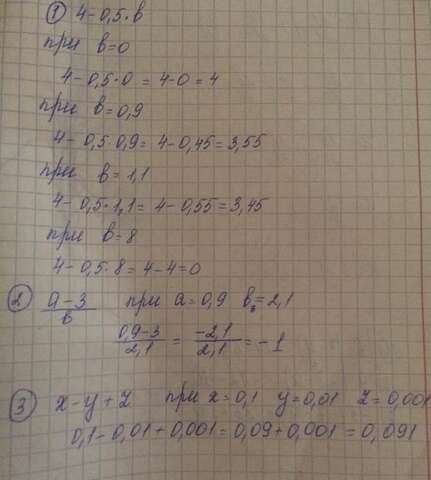 ① 4-0,5·в
при в=0
4-0,5·0=4-0=4
при в=0,9
4-0,5·0,9=4-0,45=3,55
при в=1,1
4-0,5·1,1=4-0,55=3,45
при в=8
4-0,5·8=4-4=0
② (a-3)/в при a=0,9 в=2,1
(0,9-3)/2,1 = (-2,1)/2,1 = -1
③ x-y+z при x=0,1 y=0,01 z=0,001
0,1-0,01+0,001=0,09+0,001=0,091